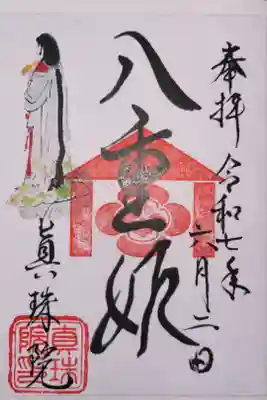 奉拝 令和七年
六月二日
八重姫
眞珠院
真珠
院印